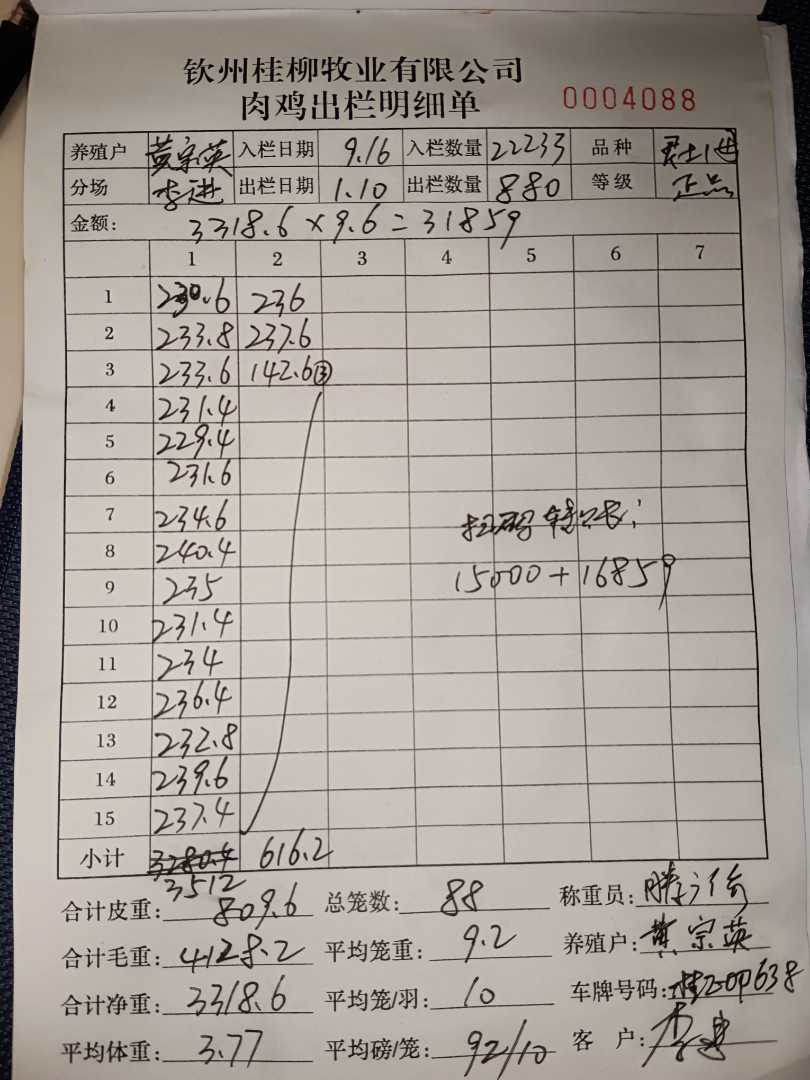 钦州桂柳牧业有限公司
肉鸡出栏明细单 0004088
养殖户 黄宗英 入栏日期 9.16 入栏数量 22233 品种
分场 李进 出栏日期 1.10 出栏数量 880 等级 正品
金额: 3318.6×9.6=31859
1 2 3 4 5 6 7
1 230.6 236
2 233.8 237.6
3 233.6 142.6③
4 231.4
5 229.4
6 231.6
7 234.6
8 240.4
9 235
10 231.4
11 234
12 236.4
13 232.8
14 239.6
15 237.4
扫码转账:
15000+16859
小计 3280.4 616.2
3512
合计皮重: 809.6 总笼数: 88 称重员:
合计毛重: 4128.2 平均笼重: 9.2 养殖户: 黄宗英
合计净重: 3318.6 平均笼/羽: 10 车牌号码:
平均体重: 3.77 平均磅/笼: 92/10 客户: